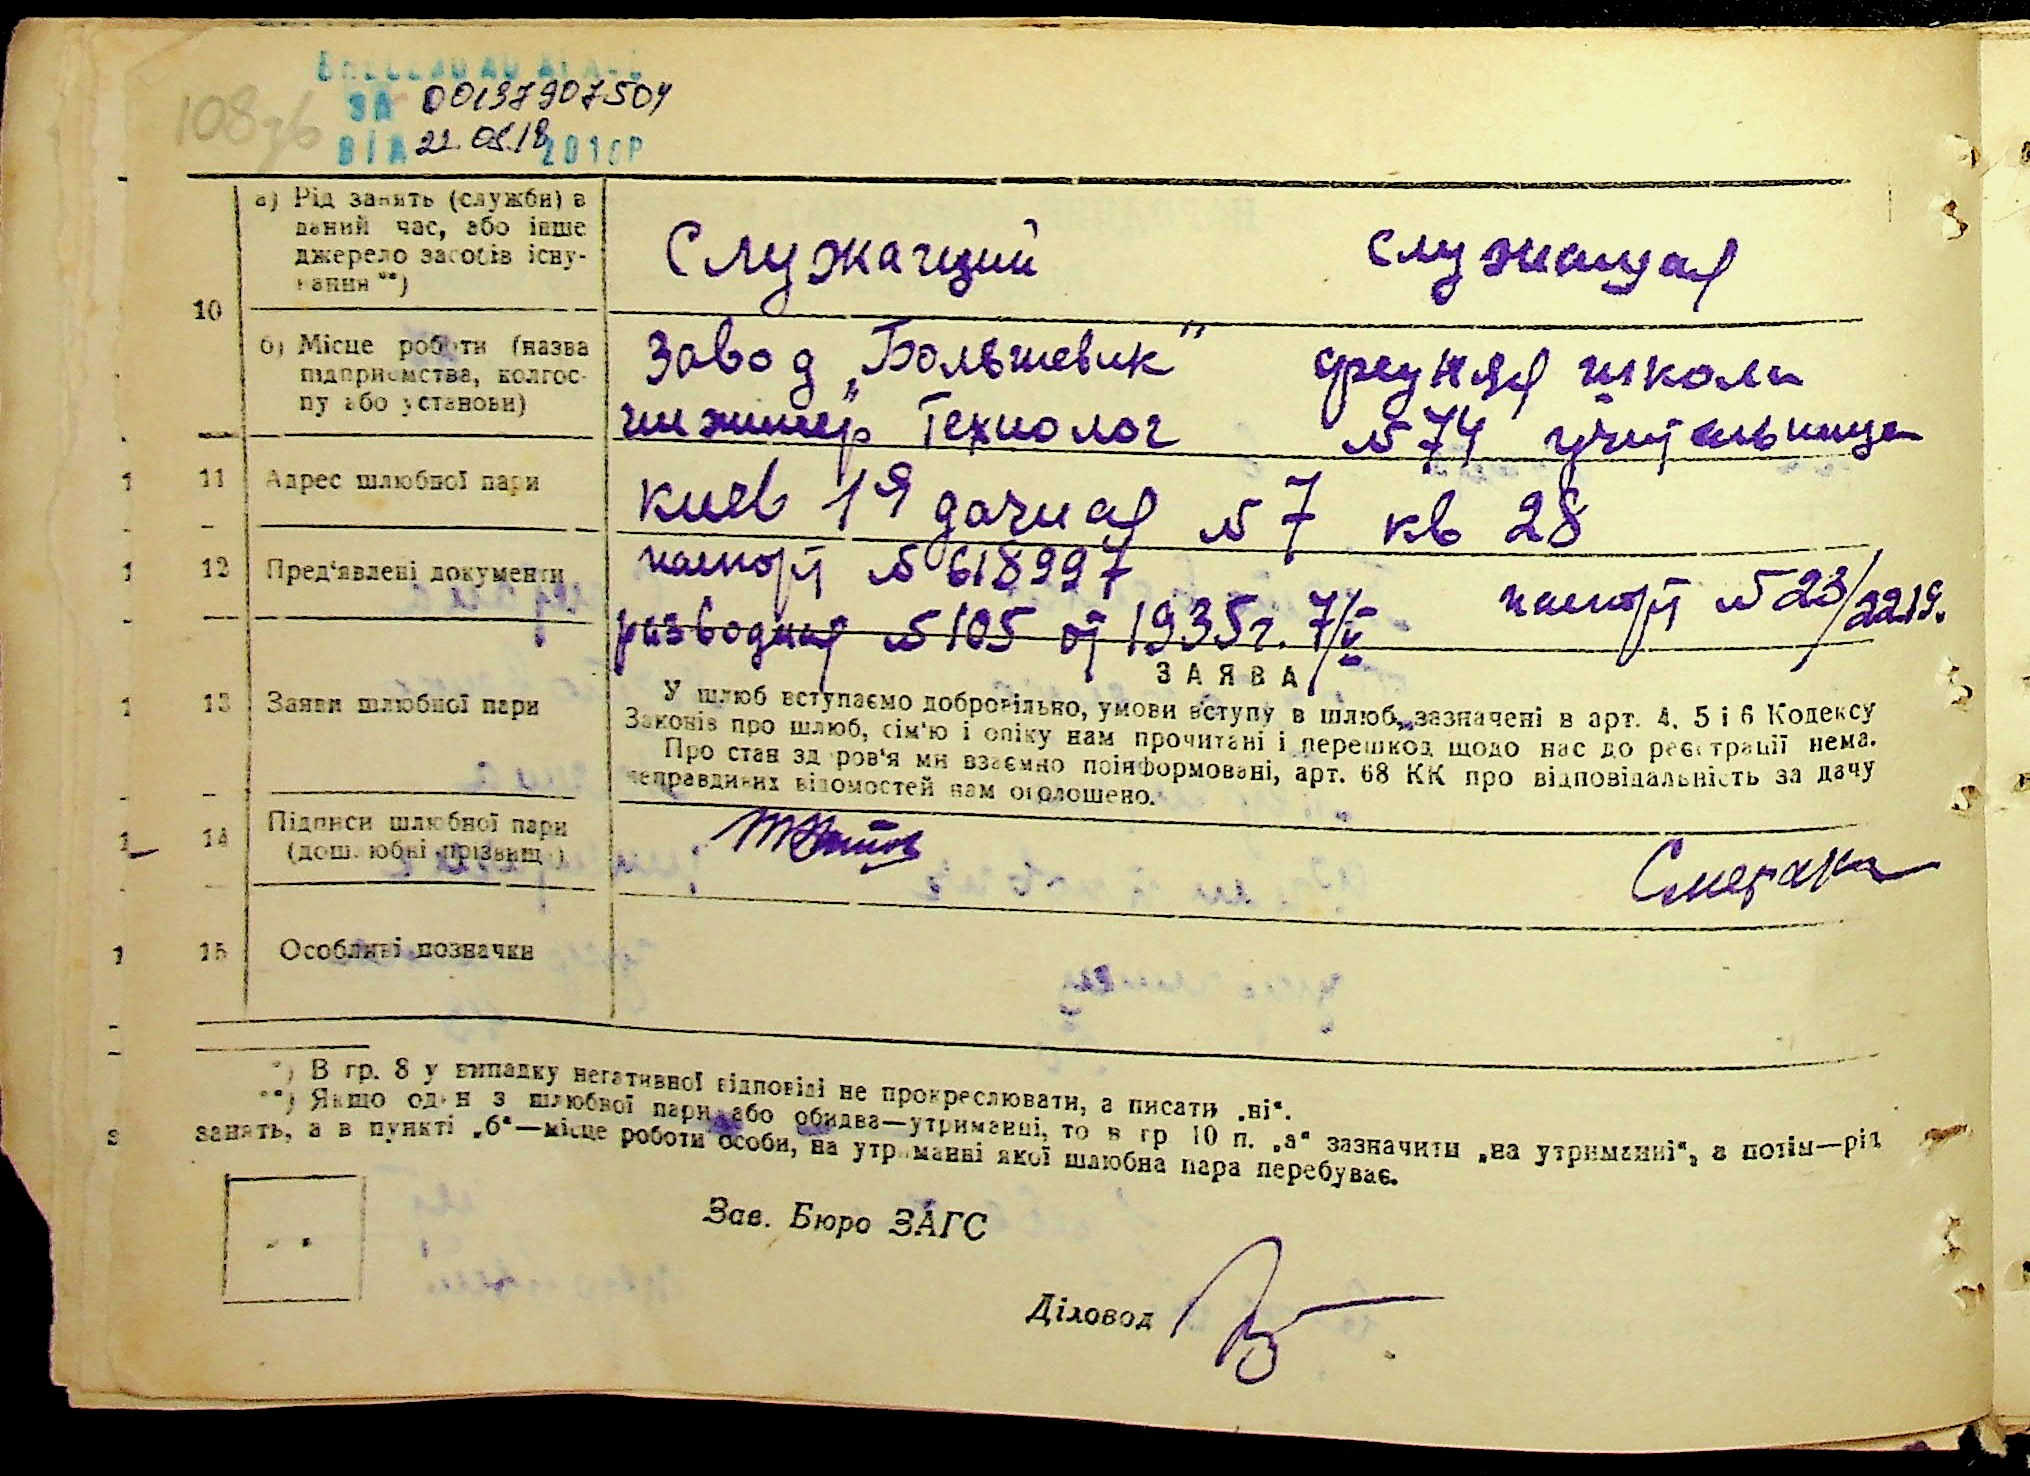 108зв
ВНЕСЕНО ДО ДРАЦС
ЗА 00137907504
ВІД 22.08.18 201 р
10
а) Рід занять (служби) в
даний час, або інше
джерело засобів існу-
вання **)
Служачий
служащая
б) Місце роботи (назва
підприємства, колгос-
пу або установи)
Завод „Большевик"
инжинер Технолог
средняя школа
№ 74 учительница
11
Адрес шлюбної пари
Киев 1ая дачная № 7 кв 28
12
Пред'явлені документи
паспорт № 618997
разводная № 105 от 1935г. 7/II
паспорт № 23/2219.
13
Заяви шлюбної пари
ЗАЯВА
У шлюб вступаємо добровільно, умови вступу в шлюб, зазначені в арт. 4, 5 і 6 Кодексу
Законів про шлюб, сім'ю і опіку нам прочитані і перешкод щодо нас до реєстрації нема.
Про стан здоров'я ми взаємно поінформовані, арт. 68 КК про відповідальність за дачу
неправдивих відомостей нам оголошено.
14
Підписи шлюбної пари
(дошлюбні прізвища)
15
Особливі позначки
*) В гр. 8 у випадку негативної відповіді не прокреслювати, а писати „ні“.
**) Якщо один з шлюбної пари або обидва—утриманці, то в гр 10 п. „а“ зазначити „на утриманні“, а потім—рід
занять, а в пункті „б“—місце роботи особи, на утриманні якої шлюбна пара перебуває.
Зав. Бюро ЗАГС
Діловод